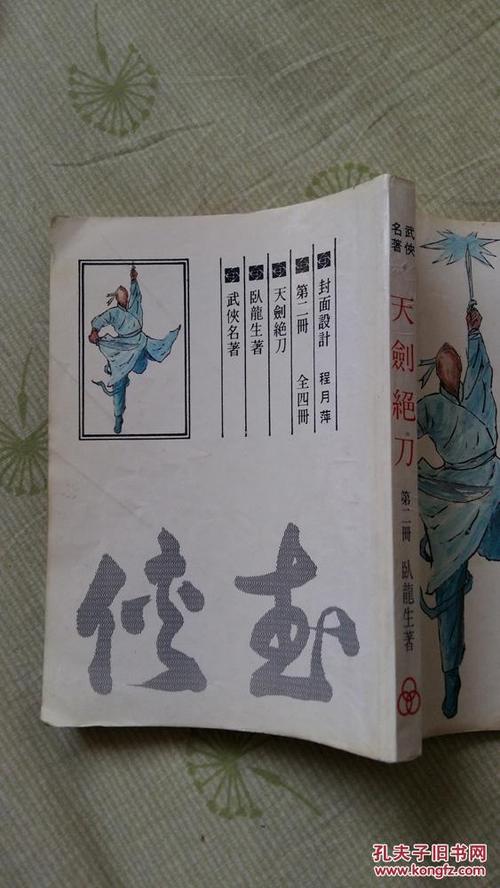 封面設計 程月萍
第二冊 全四冊
天劍絕刀
臥龍生著
武俠名著
武俠
武俠名著
天劍絕刀
第二冊
臥龍生著
孔夫子旧书网
www.kongfz.com